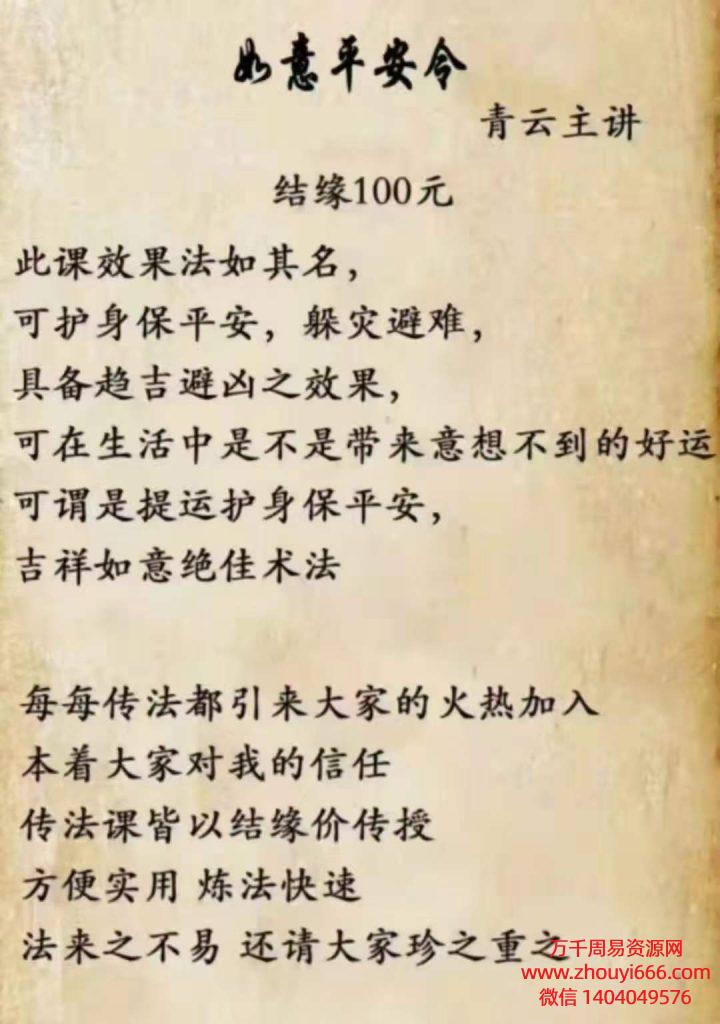 如意平安令
青云主讲
结缘100元
此课效果法如其名，
可护身保平安，躲灾避难，
具备趋吉避凶之效果，
可在生活中是不是带来意想不到的好运
可谓是提运护身保平安，
吉祥如意绝佳术法
每每传法都引来大家的火热加入
本着大家对我的信任
传法课皆以结缘价传授
方便实用 炼法快速
法来之不易 还请大家珍之重之
万千周易资源网
www.zhouyi666.com
微信 1404049576